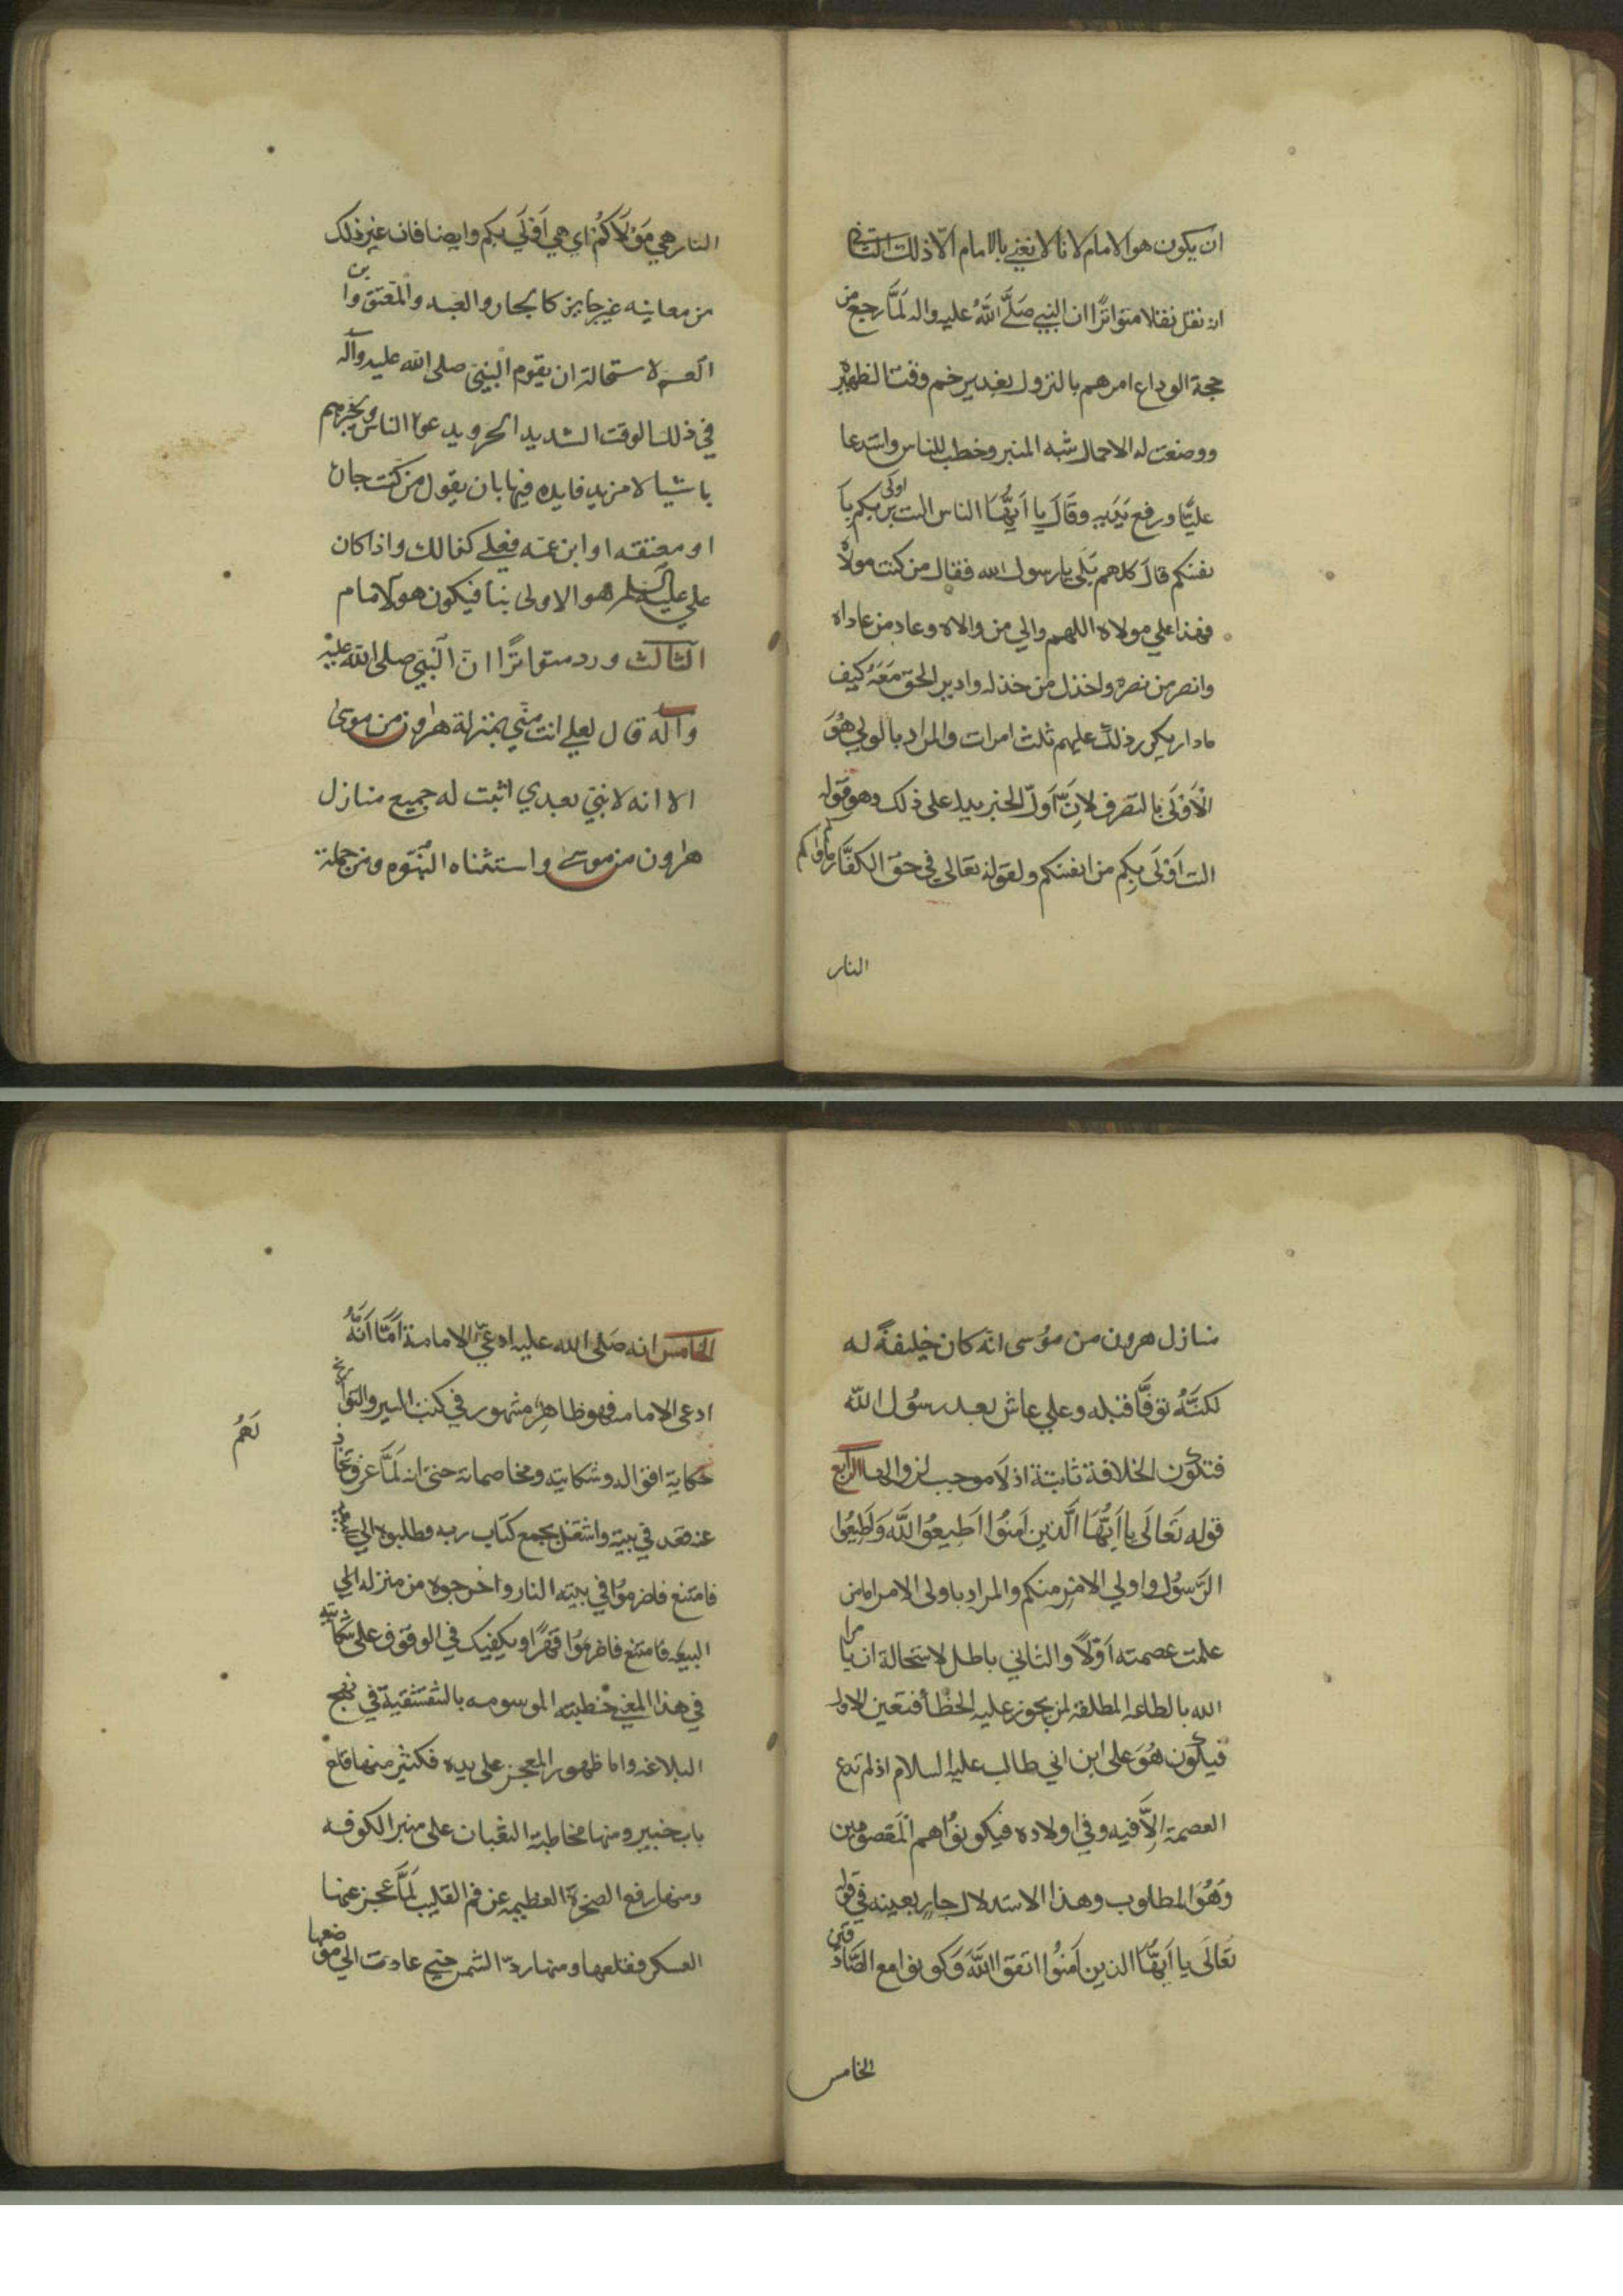 ان يكون هو الامام لانا لا نعني بالامام الا ذلك الثاني
انه نقل نقلا متواترًا ان النبي صَلَّى اللَّهُ عليه واله لَمَّا رجع من
حجة الوداع امرهم بالنزول بغدير خم وقت الظهيرة
ووضعت له الاحمال شبه المنبر وخطب للناس واستدعا
عليًّا ورفع بيديه وقَالَ يا اَيُّهَا الناس الست اولى بكم
نفسكم قالَ كلهم بَلَى يا رسول الله فقال من كنت مولاه
فهذا علي مولاه اللهم والي من والاه وعاد من عاداه
وانصر من نصره واخذل من خذله وادير الحق مَعَهُ كيف
مادار يكرر ذلك عليهم ثلث امرات والمراد بالولي هُوَ
الْاَوْلَى بالتصرف لاِنَّ اَوَّل الخبر يدل على ذلك وهو قوله
الست اَوْلَى بِكم من انفسكم ولقوله تعَالي في حق الكفَّار ماواكم
النار
النار هي مَوْلَاكُمْ اي هي اَوْلَي بكم وايضا فان غير ذلك
من معانيه غير جايز كالجار والعبد والمعتق وابن
العم لاستحالة ان يقوم النبي صلى الله عليه وآله
في ذلك الوقت الشديد الحر ويدعوا الناس ويخبرهم
باشيا لا مزيد فايده فيها بان يقول من كنت جان
او معتقه او ابن عمه فعلي كذالك واذا كان
علي عليه السلم هو الاولى بنا فيكون هو الامام
الثالث ورد متواترًا انّ النبي صلى الله عليه
وآله قال لعلي انت مني بمنزلة هرون من موسى
الا انه لا نبي بعدي اثبت له جميع منازل
هرون من موسى واستثناه النبوه ومن جملة
منازل هرون من موُسى انه كان خليفةً له
لكنَّهُ توفَّا قبله وعلي عاش بعد رسُول اللّه
فتكون الخلافة ثابتة اذ لَا موجب لزوالها الرابع
قوله تَعَالَى يا اَيُّهَا الَّذين اَمنُوا اَطِيعُوا اللَّهَ وَاَطِيعُوا
الرَّسوُل واولي الامْرِ منكم والمراد باولى الامر امامن
علمت عصمته اَوَّلاً والثاني باطل لاستحالة ان يامر
الله بالطاعه المطلقة لمن يجوز عليه الخطأ فتعين الاول
فيكون هُوَ على ابن ابي طالب عليه السلام اذ لم تدع
العصمة اِلاَّ فيه وفي اولاده فيكونوا هم المعصومين
وَهُوَ المطلوب وهذا الاستدلال جارٍ بعينه في قوله
تَعَالَى يا اَيُّهَا الذين اَمنُوا اتقوا اللَّهَ وَكونوا مع الصَّادقين
الخامس
الخامس انه صَلى الله عليه ادعيّ الامامة اَمَّا اَنَّهُ
ادعى الامامه فهو ظاهِرٌ مشهور في كتب السير والتواريخ
حكاية اقواله وشكايته ومخاصماته حتى انه لَمَّا عرف تخاذ
لَهُمْ
عنه قعد في بيته واشتغل بجمع كتاب ربه وطلبوه الي
فامتنع فاضرموُا في بيته النار واخرجوه من منزله الي
البيعه فامتنع قهرًا ويكفيك في الوقوف على شكايته
في هذا المعني خطبته الموسومه بالشقشقية في نهج
البلاغه واما ظهور المعجز على يده فكثير منها قلع
باب خيبر ومنها مخاطبة الثعبان على منبر الكوفه
ومنها رفع الصخرة العظيمه عن فم القليب لَمَّا عجز عنها
العسكر فقلعها ومنها ردّ الشمس حتى عادت الي موضعها